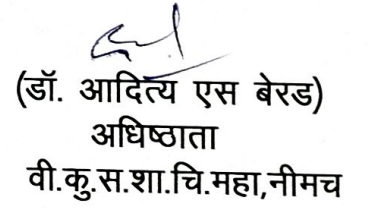 (डॉ. आदित्य एस बेरड)
अधिष्ठाता
वी.कु.स.शा.चि.महा,नीमच